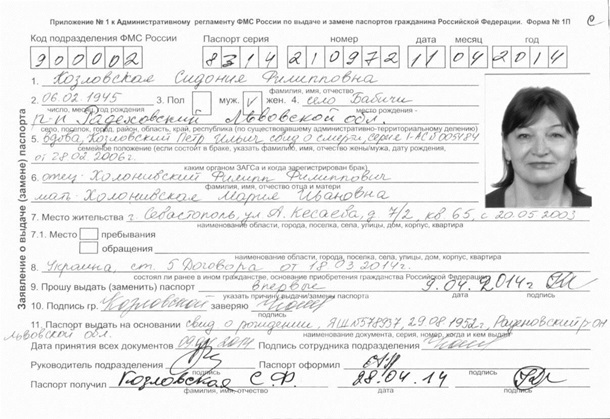 Приложение № 1 к Административному регламенту ФМС России по выдаче и замене паспортов гражданина Российской Федерации. Форма № 1П
Код подразделения ФМС России Паспорт серия номер день месяц год
900002 8314 210972 11 04 2014
1. Козловская Сидония Филипповна
фамилия, имя, отчество
2. 06.02.1945 3. Пол муж. V жен. 4. село Бабичи
число, месяц, год рождения
р-н Радеховский Львовской обл.
село, поселок, город, район, область, край, республика (по существующему административно-территориальному делению)
5. вдова, Козловский Петр Ильич свид о смерти, серия 1-АС №009184
семейное положение (если состоит в браке, указать фамилию, имя, отчество жены/мужа, дата рождения,
от 28.02.2006г.
каким органом ЗАГСа и когда зарегистрирован брак)
6. отец-Холонивский Филипп Филиппович
фамилия, имя, отчество отца и матери
мать-Холонивская Мария Ивановна
7. Место жительства г. Севастополь, ул А. Кесаева, д 7/2, кв 65, с 20.05.2003
наименование области, города, поселка, села, улицы, дом, корпус, квартира
7.1. Место пребывания
обращения
наименование области, города, поселка, села, улицы, дом, корпус, квартира
8. Украина, ст. 5 Договора от 18.03.2014г.
состоял ли ранее в ином гражданстве, основание приобретения гражданства Российской Федерации
9. Прошу выдать (заменить) паспорт впервые 9.04.2014г
указать причину выдачи/замены паспорта подпись
10. Подпись гр. Козловской заверяю
фамилия подпись
11. Паспорт выдать на основании свид о рождении, ЯШ №578937, 29.08.1952г, Радеховский р-он
Львовской обл.
наименование документа, серия, номер, когда и кем выдан
Дата принятия всех документов 09.04.2014 Подпись сотрудника подразделения
подпись
Руководитель подразделения Паспорт оформил
подпись подпись
Паспорт получил Козловская С. Ф. 28.04.14
фамилия, имя, отчество дата подпись
Заявление о выдаче (замене) паспорта